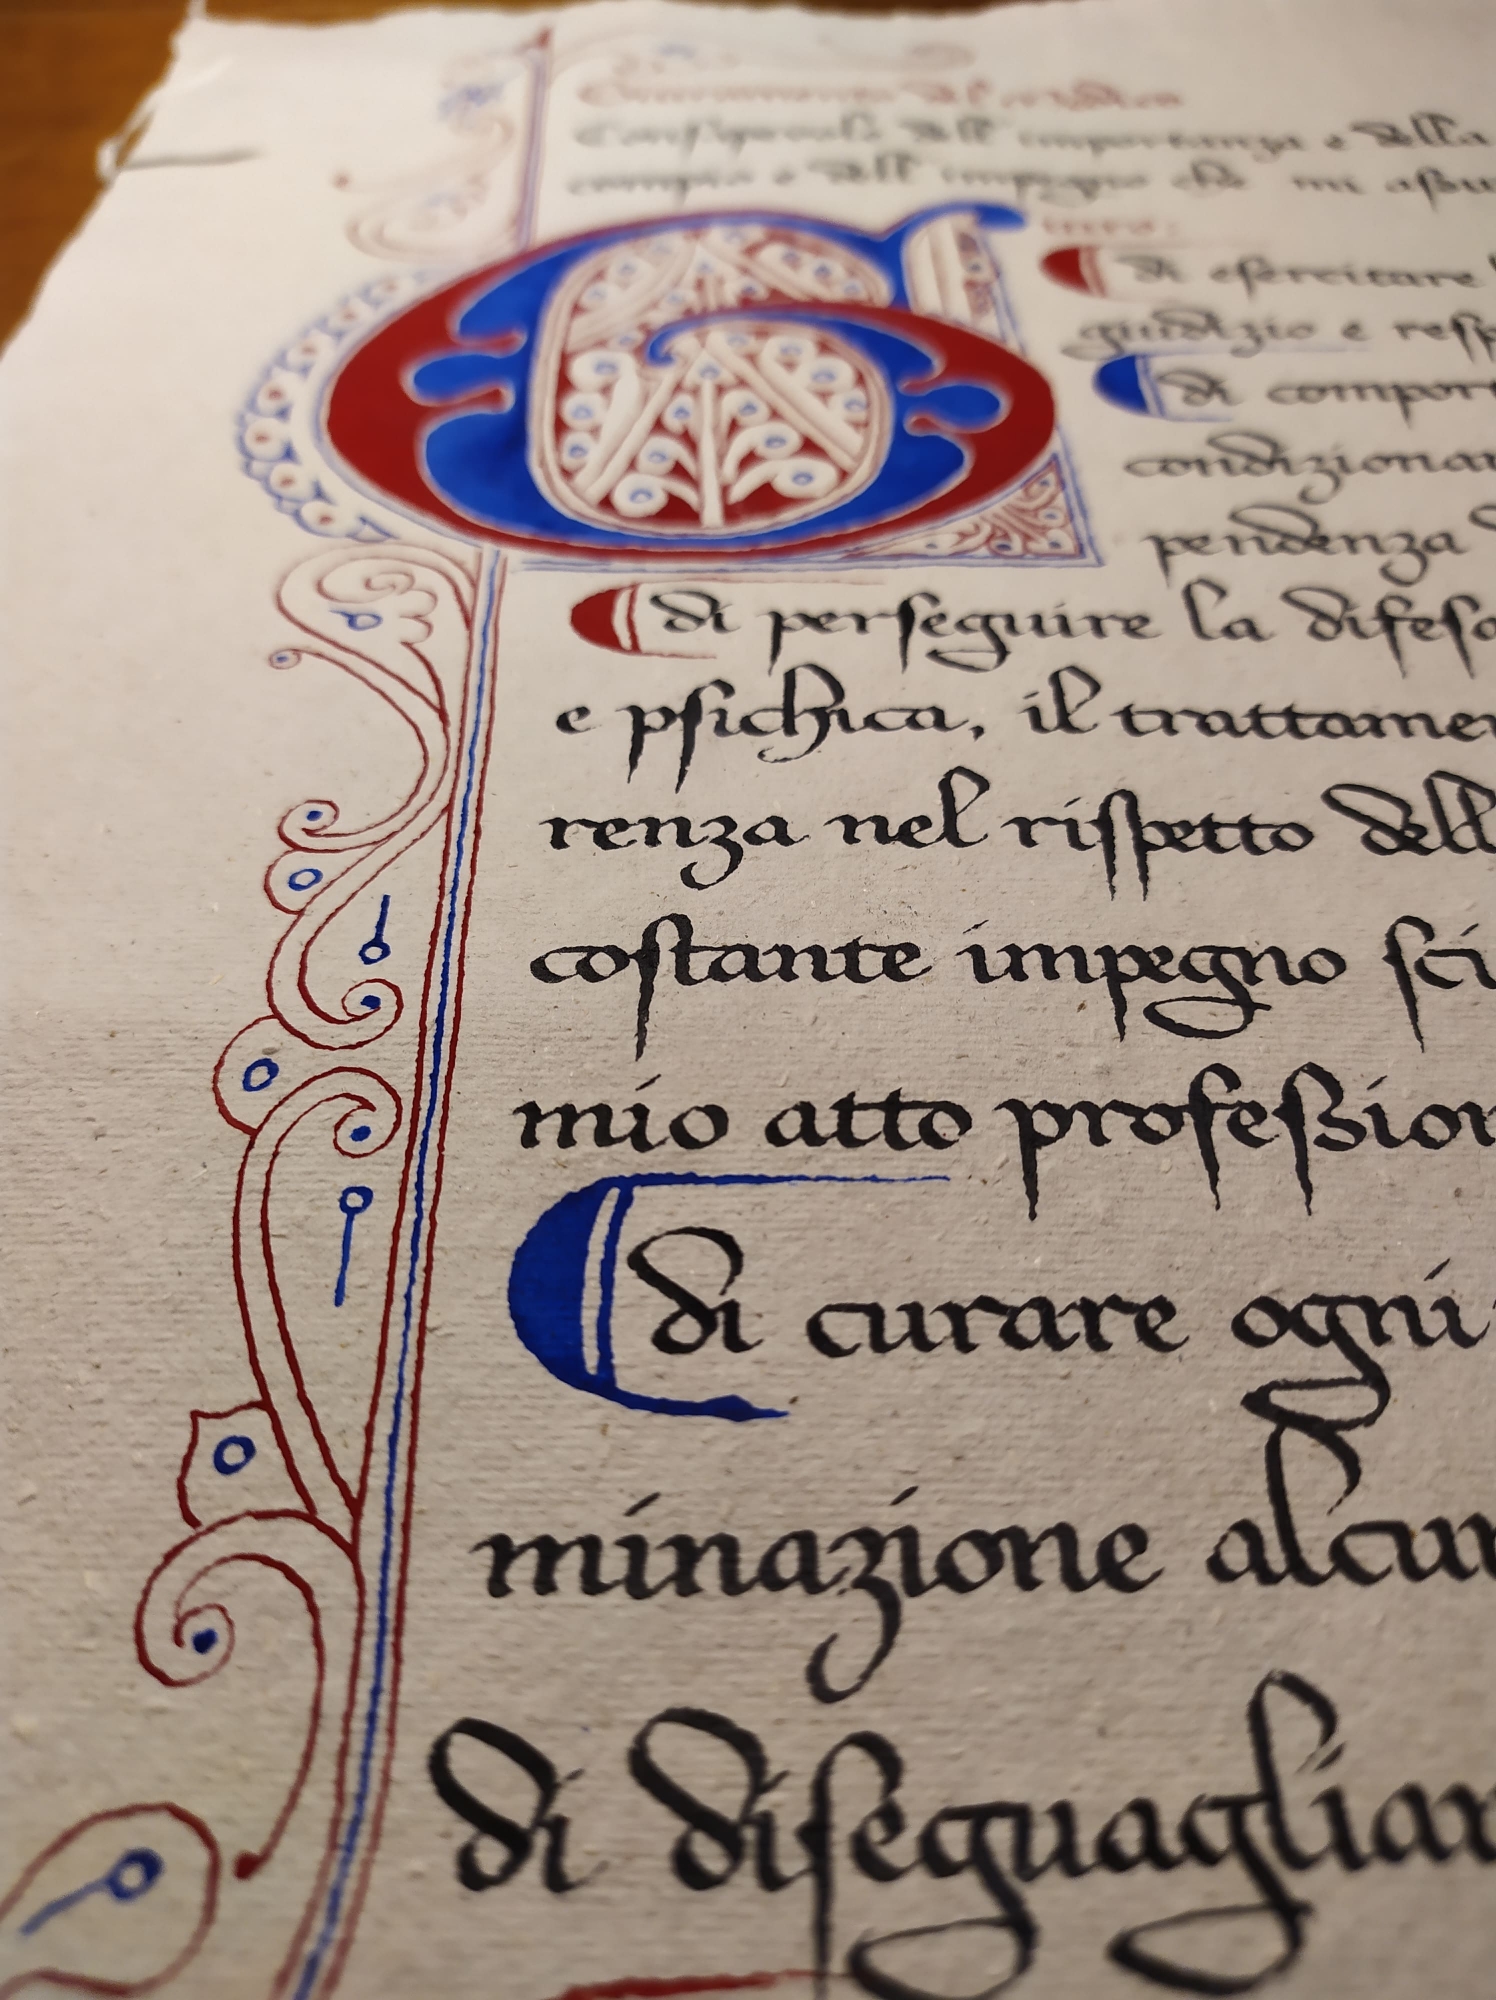 Consapevole dell'importanza e della
e dell'impegno che mi aſsu
G
iuro:
di eſercitare
giudizio e reſp
di comport
condizionam
pendenza
di perſeguire la difeſa
e pſichica, il trattamen
renza nel riſpetto dell
coſtante impegno ſci
mio atto profeſſion
di curare ogni
minazione alcun
di diſeguaglian